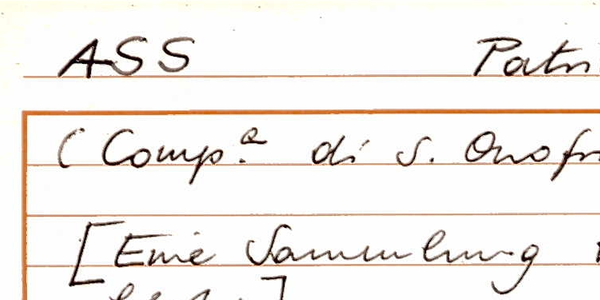 ASS Patri
(Comp.a di S. Onofr
[Eine Sammlung